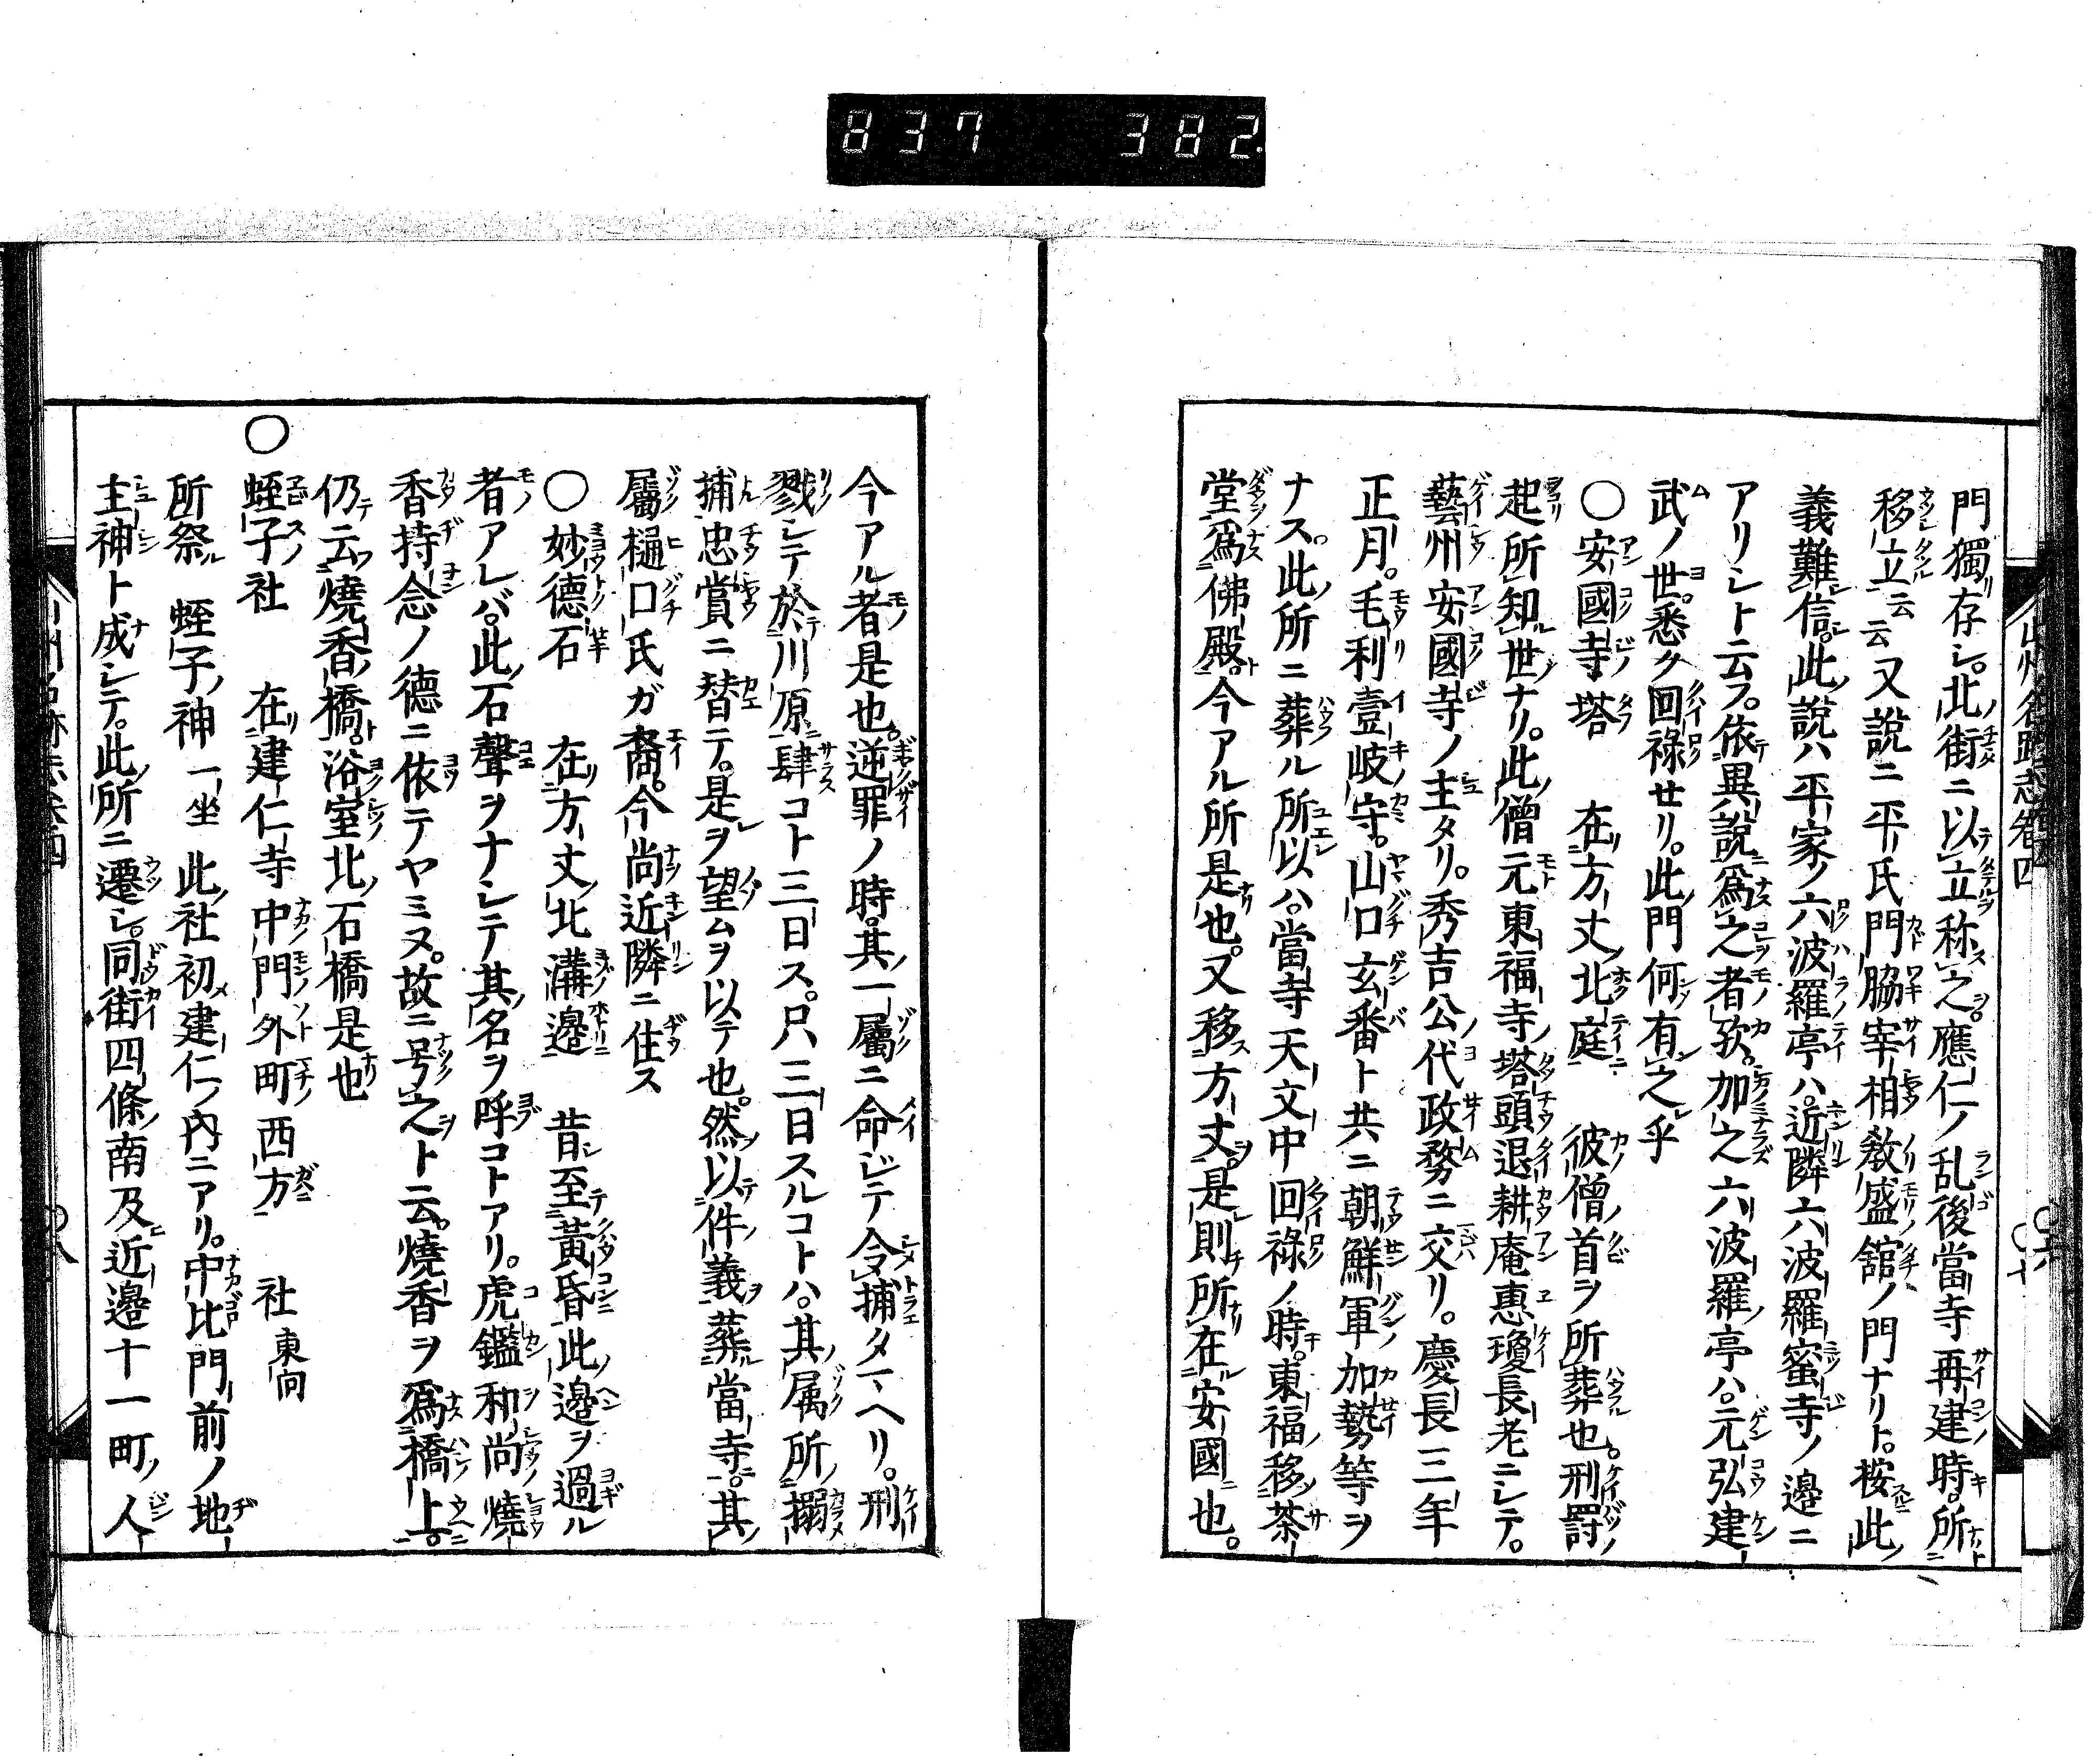 837 382
山州名跡志巻四
門獨存シ。北街ニ以立称之。應仁ノ乱後當寺再建時。所
移立云云又説ニ平氏門脇宰相敎盛舘ノ門ナリト。按此
義難信。此説ハ平家ノ六波羅亭ハ。近隣六波羅蜜寺ノ邉ニ
アリシト云フ。依異説爲之者歟。加之六波羅亭ハ。元弘建
武ノ世。悉ク回祿セリ。此門何有之乎
〇安國寺塔 在方丈北庭 彼僧首ヲ所葬也。刑罸
起所知世ナリ。此僧元東福寺塔頭退耕庵惠瓊長老ニシテ。
藝州安國寺ノ主タリ。秀吉公代政務ニ交リ。慶長三年
正月。毛利壹岐守。山口玄番ト共ニ朝鮮軍加勢等ヲ
ナス。此所ニ葬ル所以ハ。當寺天文中回祿ノ時。東福移茶
堂爲佛殿。今アル所是也。又移方丈。是則所在安國也。
今アル者是也。逆罪ノ時。其一屬ニ命ジテ令捕タマヘリ。刑
戮シテ於川原肆コト三日ス。只三日スルコトハ。其属所搦
捕忠賞ニ替テ。是ヲ望ムヲ以テ也。然以件義葬當寺。其
屬樋口氏ガ裔。今尚近隣ニ住ス
〇妙德石 在方丈北溝邉 昔至黄昏此邉ヲ過ル
者アレバ。此石聲ヲナシテ其名ヲ呼コトアリ。虎鑑和尚燒
香持念ノ德ニ依テヤミヌ。故ニ号之ト云。燒香ヲ爲橋上。
仍云燒香橋。浴室北石橋是也
〇蛭子社 在建仁寺中門外町西方 社東向
所祭 蛭子神一坐 此社初建仁内ニアリ。中比門前ノ地
主神ト成シテ。此所ニ遷シ。同街四條南及近邉十一町人